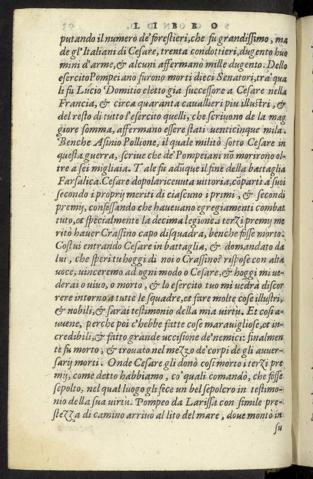 LIBRO
putando il numero de' forestieri, che fu grandissimo, ma
de gl'Italiani di Cesare, trenta condottieri, dugento huo
mini d'arme, & alcuni affermano mille dugento. Dello
esercito Pompeiano furono morti dieci Senatori, tra' qua
li fu Lucio Domitio eletto gia successore a Cesare nella
Francia, & circa quaranta cavallieri piu illustri, &
del resto di tutto l'esercito quelli, che scrivono de la mag
giore somma, affermano essere stati venticinque mila.
Benche Asinio Pollione, il quale militò sotto Cesare in
questa guerra, scrive che de' Pompeiani nō morirono ol-
tre a sei migliaia. Tale fu adūque il fine della battaglia
Farsalica. Cesare dopo la ricevuta vittoria, cōpartì a suoi
secondo i proprij meriti di ciascuno i primi, & secondi
premij, confessando che havevano egregiamenti combat
tuto, & specialmente la decima legione. I terzi premij me
ritò haver Crassino capo di squadra, benche fosse morto.
Costui entrando Cesare in battaglia, & domandato da
lui, che speri tu hoggi di noi o Crassino? rispose con alta
voce, vinceremo ad ogni modo o Cesare, & hoggi mi ve-
derai o vivo, o morto, & lo esercito tuo mi vedra discor
rere intorno a tutte le squadre, et fare molte cose illustri,
& nobili, & sarai testimonio della mia virtù. Et così a-
vvene, perche poi c'hebbe fatte cose maravigliose, et in-
credibili, & fatto grande uccisione de' nemici: finalmen
te fu morto, & trovato nel mezzo de' corpi de gli auver-
sarij morti. Onde Cesare gli donò così morto i terzi pre
mij, come detto habbiamo, co' quali comandò, che fosse
sepolto, nel qual luogo gli fece un bel sepolcro in testimo-
nio della sua virtù. Pompeo da Larissa con simile pre-
stezza di camino arrivò al lito del mare, dove montò in
su